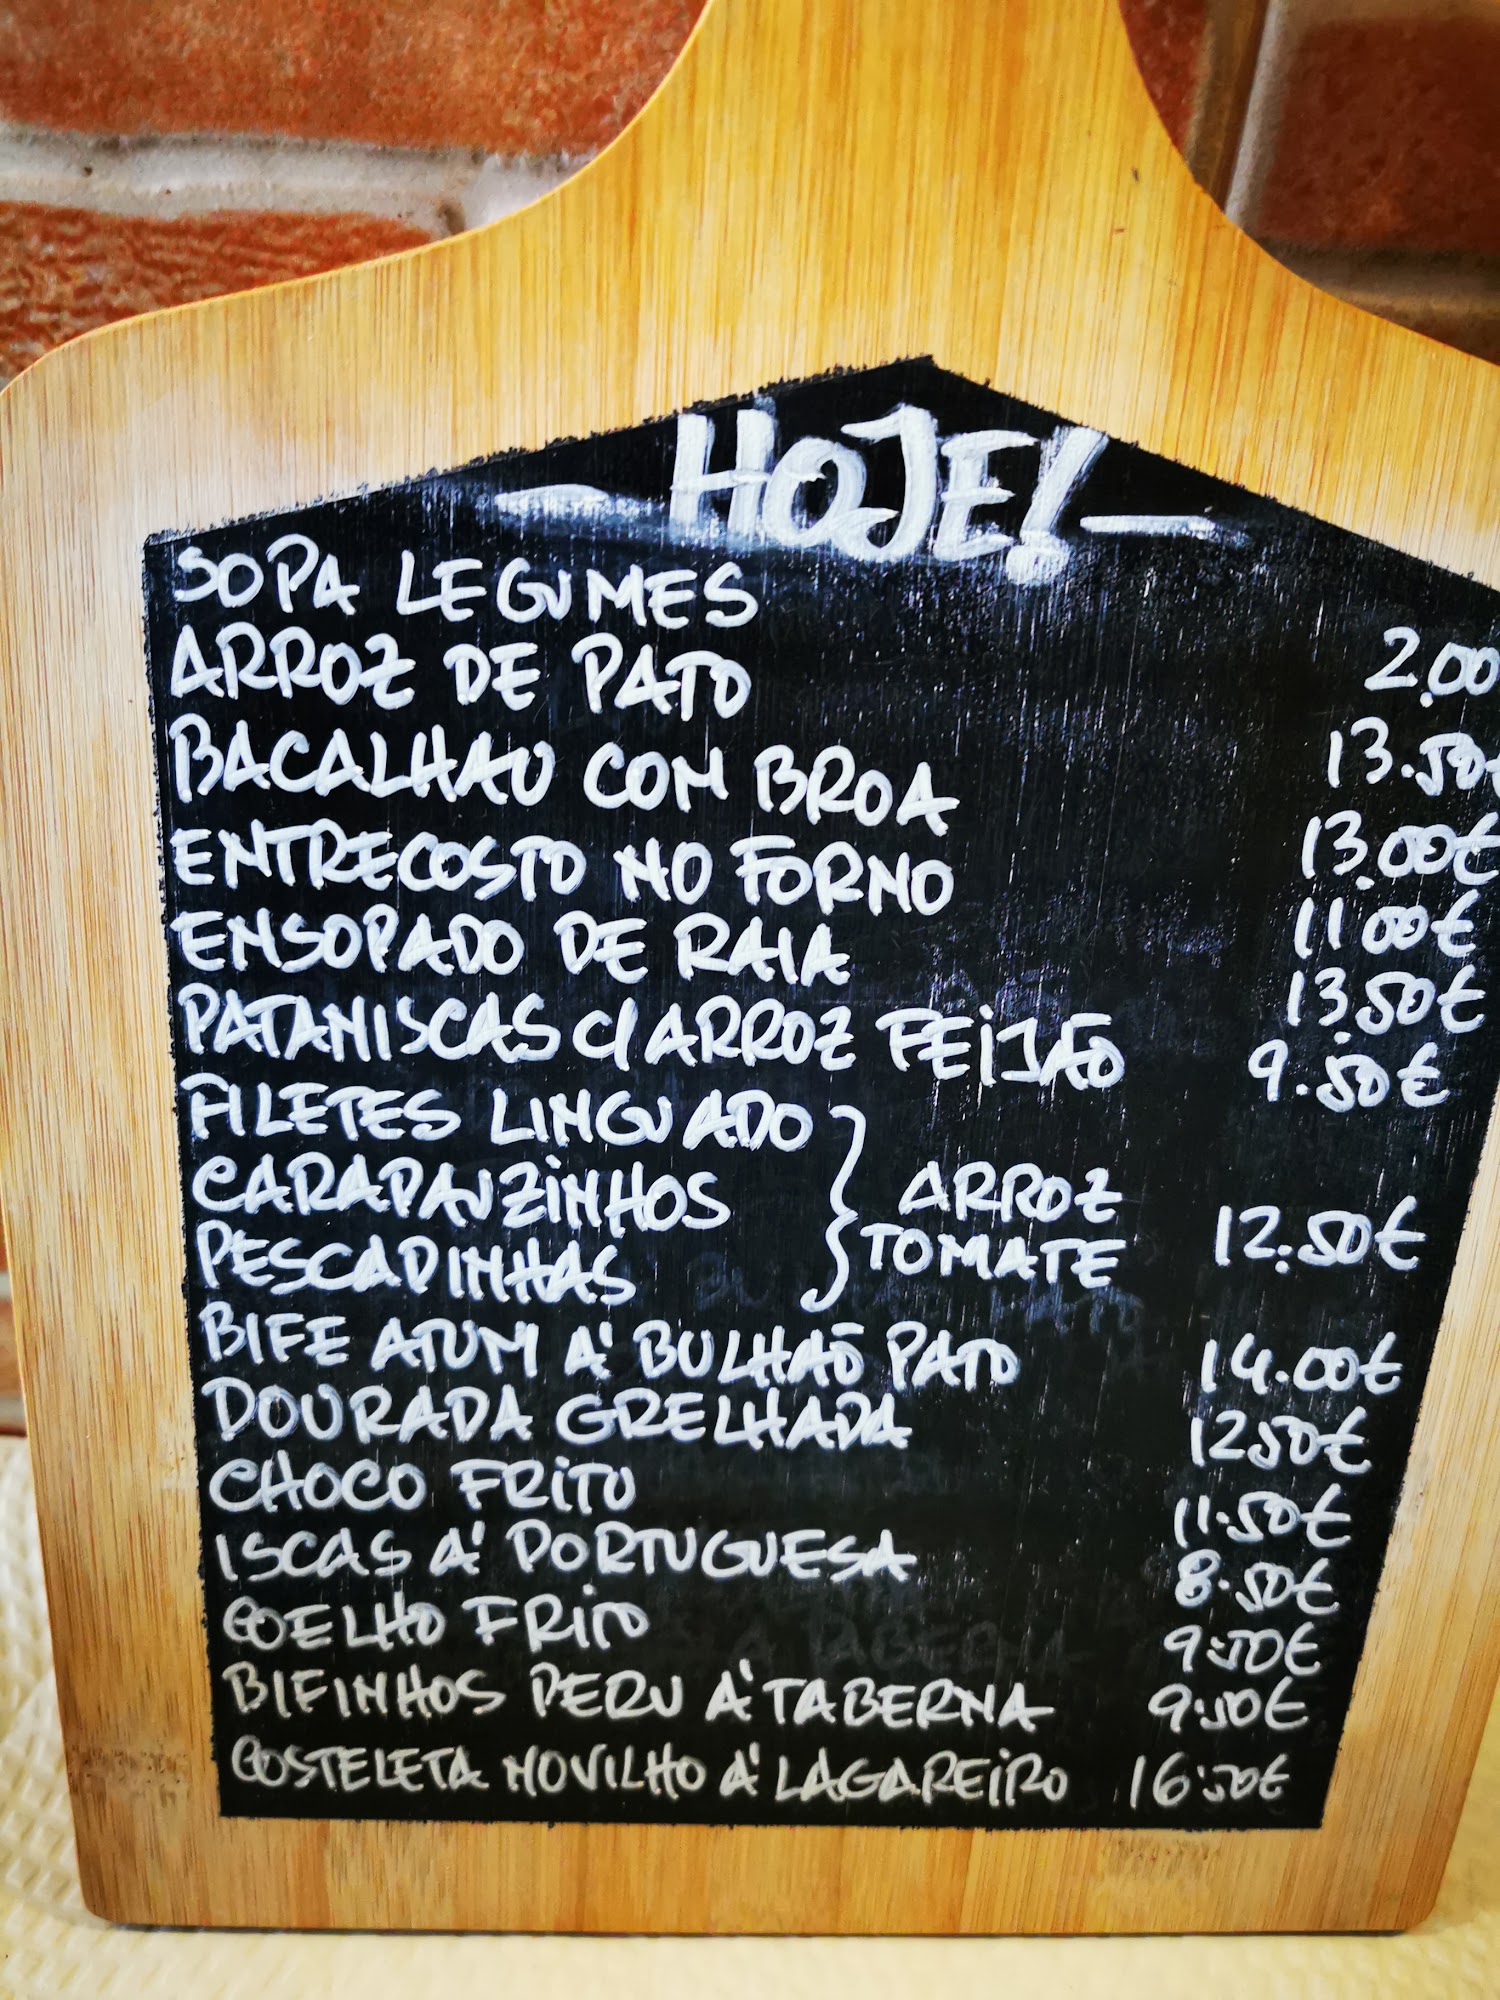 HOJE!
SOPA LEGUMES 2.00
ARROZ DE PATO 13.50€
BACALHAU COM BROA 13.00€
ENTRECOSTO NO FORNO 11.00€
ENSOPADO DE RAIA 13.50€
PATANISCAS C/ ARROZ FEIJÃO 9.50€
FILETES LINGUADO
CARAPAUZINHOS } ARROZ
PESCADINHAS TOMATE 12.50€
BIFE ATUM A' BULHÃO PATO 14.00€
DOURADA GRELHADA 12.50€
CHOCO FRITO 11.50€
ISCAS A' PORTUGUESA 8.50€
COELHO FRITO 9.50€
BIFINHOS PERU A' TABERNA 9.50€
COSTELETA NOVILHO A' LAGAREIRO 16.50€